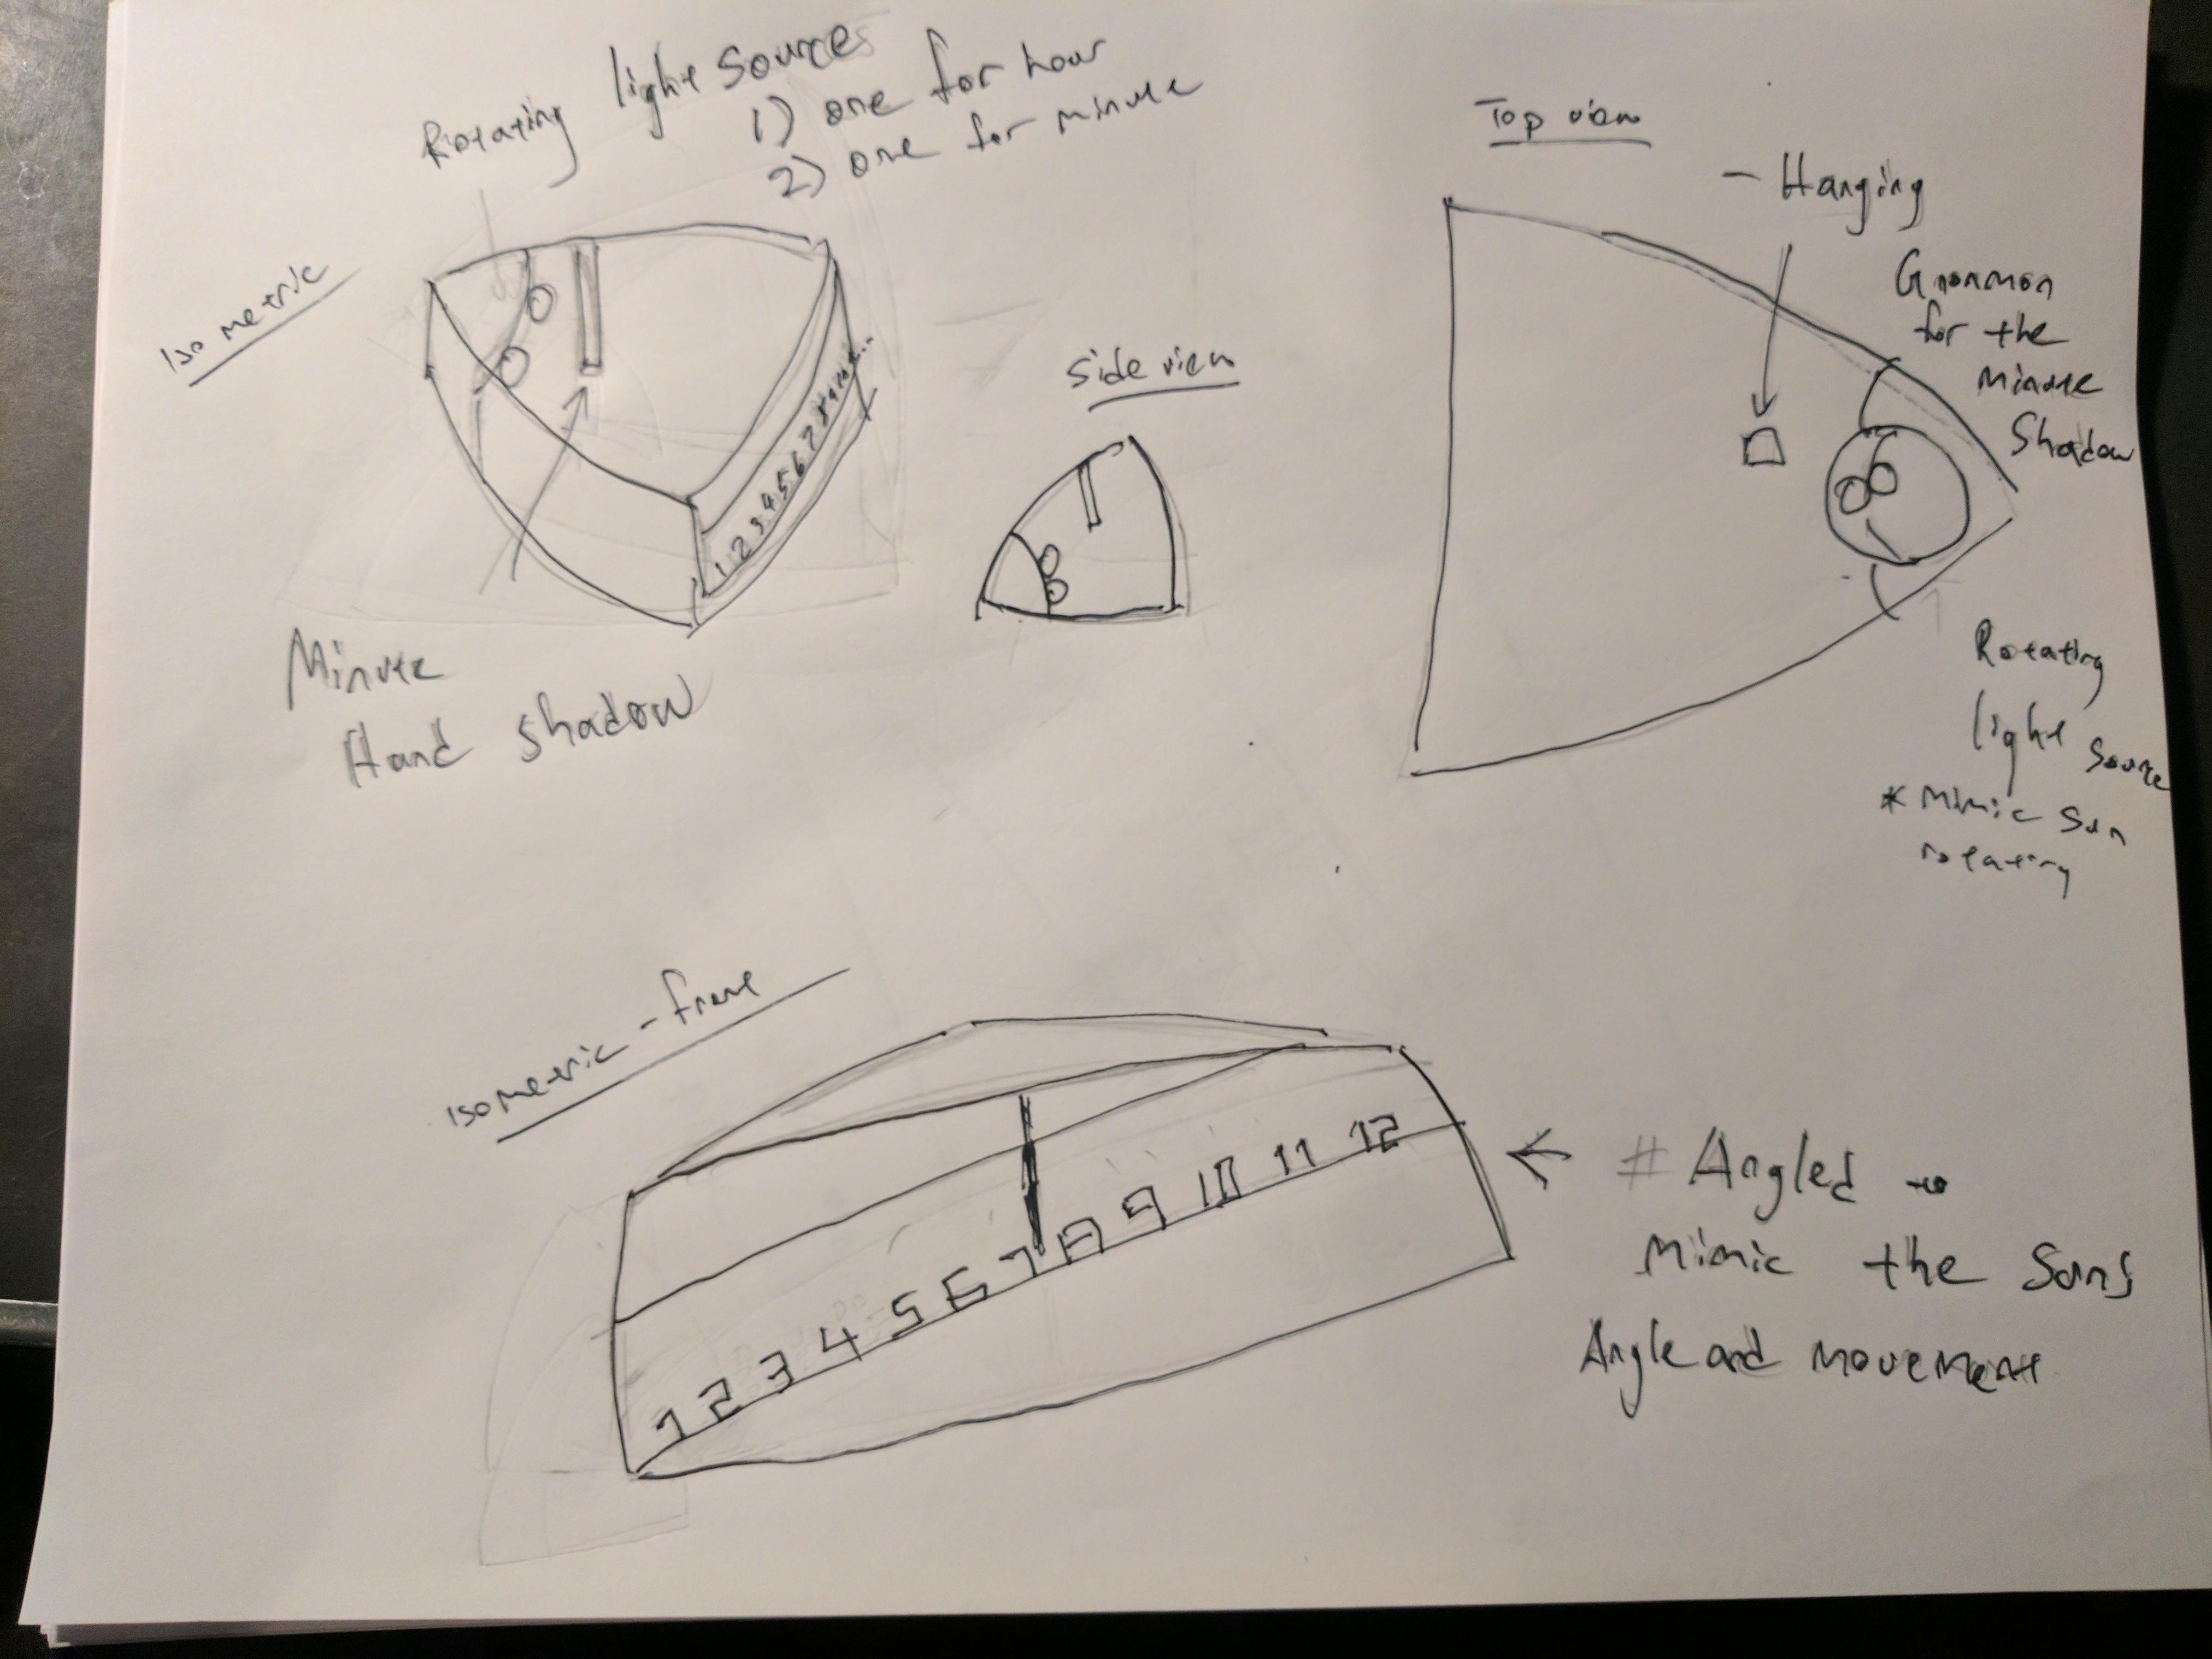 Rotating light sources
1) one for hour
2) one for minute
Isometric
1 2 3 4 5 6 7 8 9 10 11 ...
Minute
Hand shadow
Side view
Top view
- Hanging
Gnonmon
for the
Minute
Shadow
Rotating
light
source
* Mimic Sun
rotating
Isometric - front
1 2 3 4 5 6 7 8 9 10 11 12
# Angled to
Mimic the Suns
Angle and movement